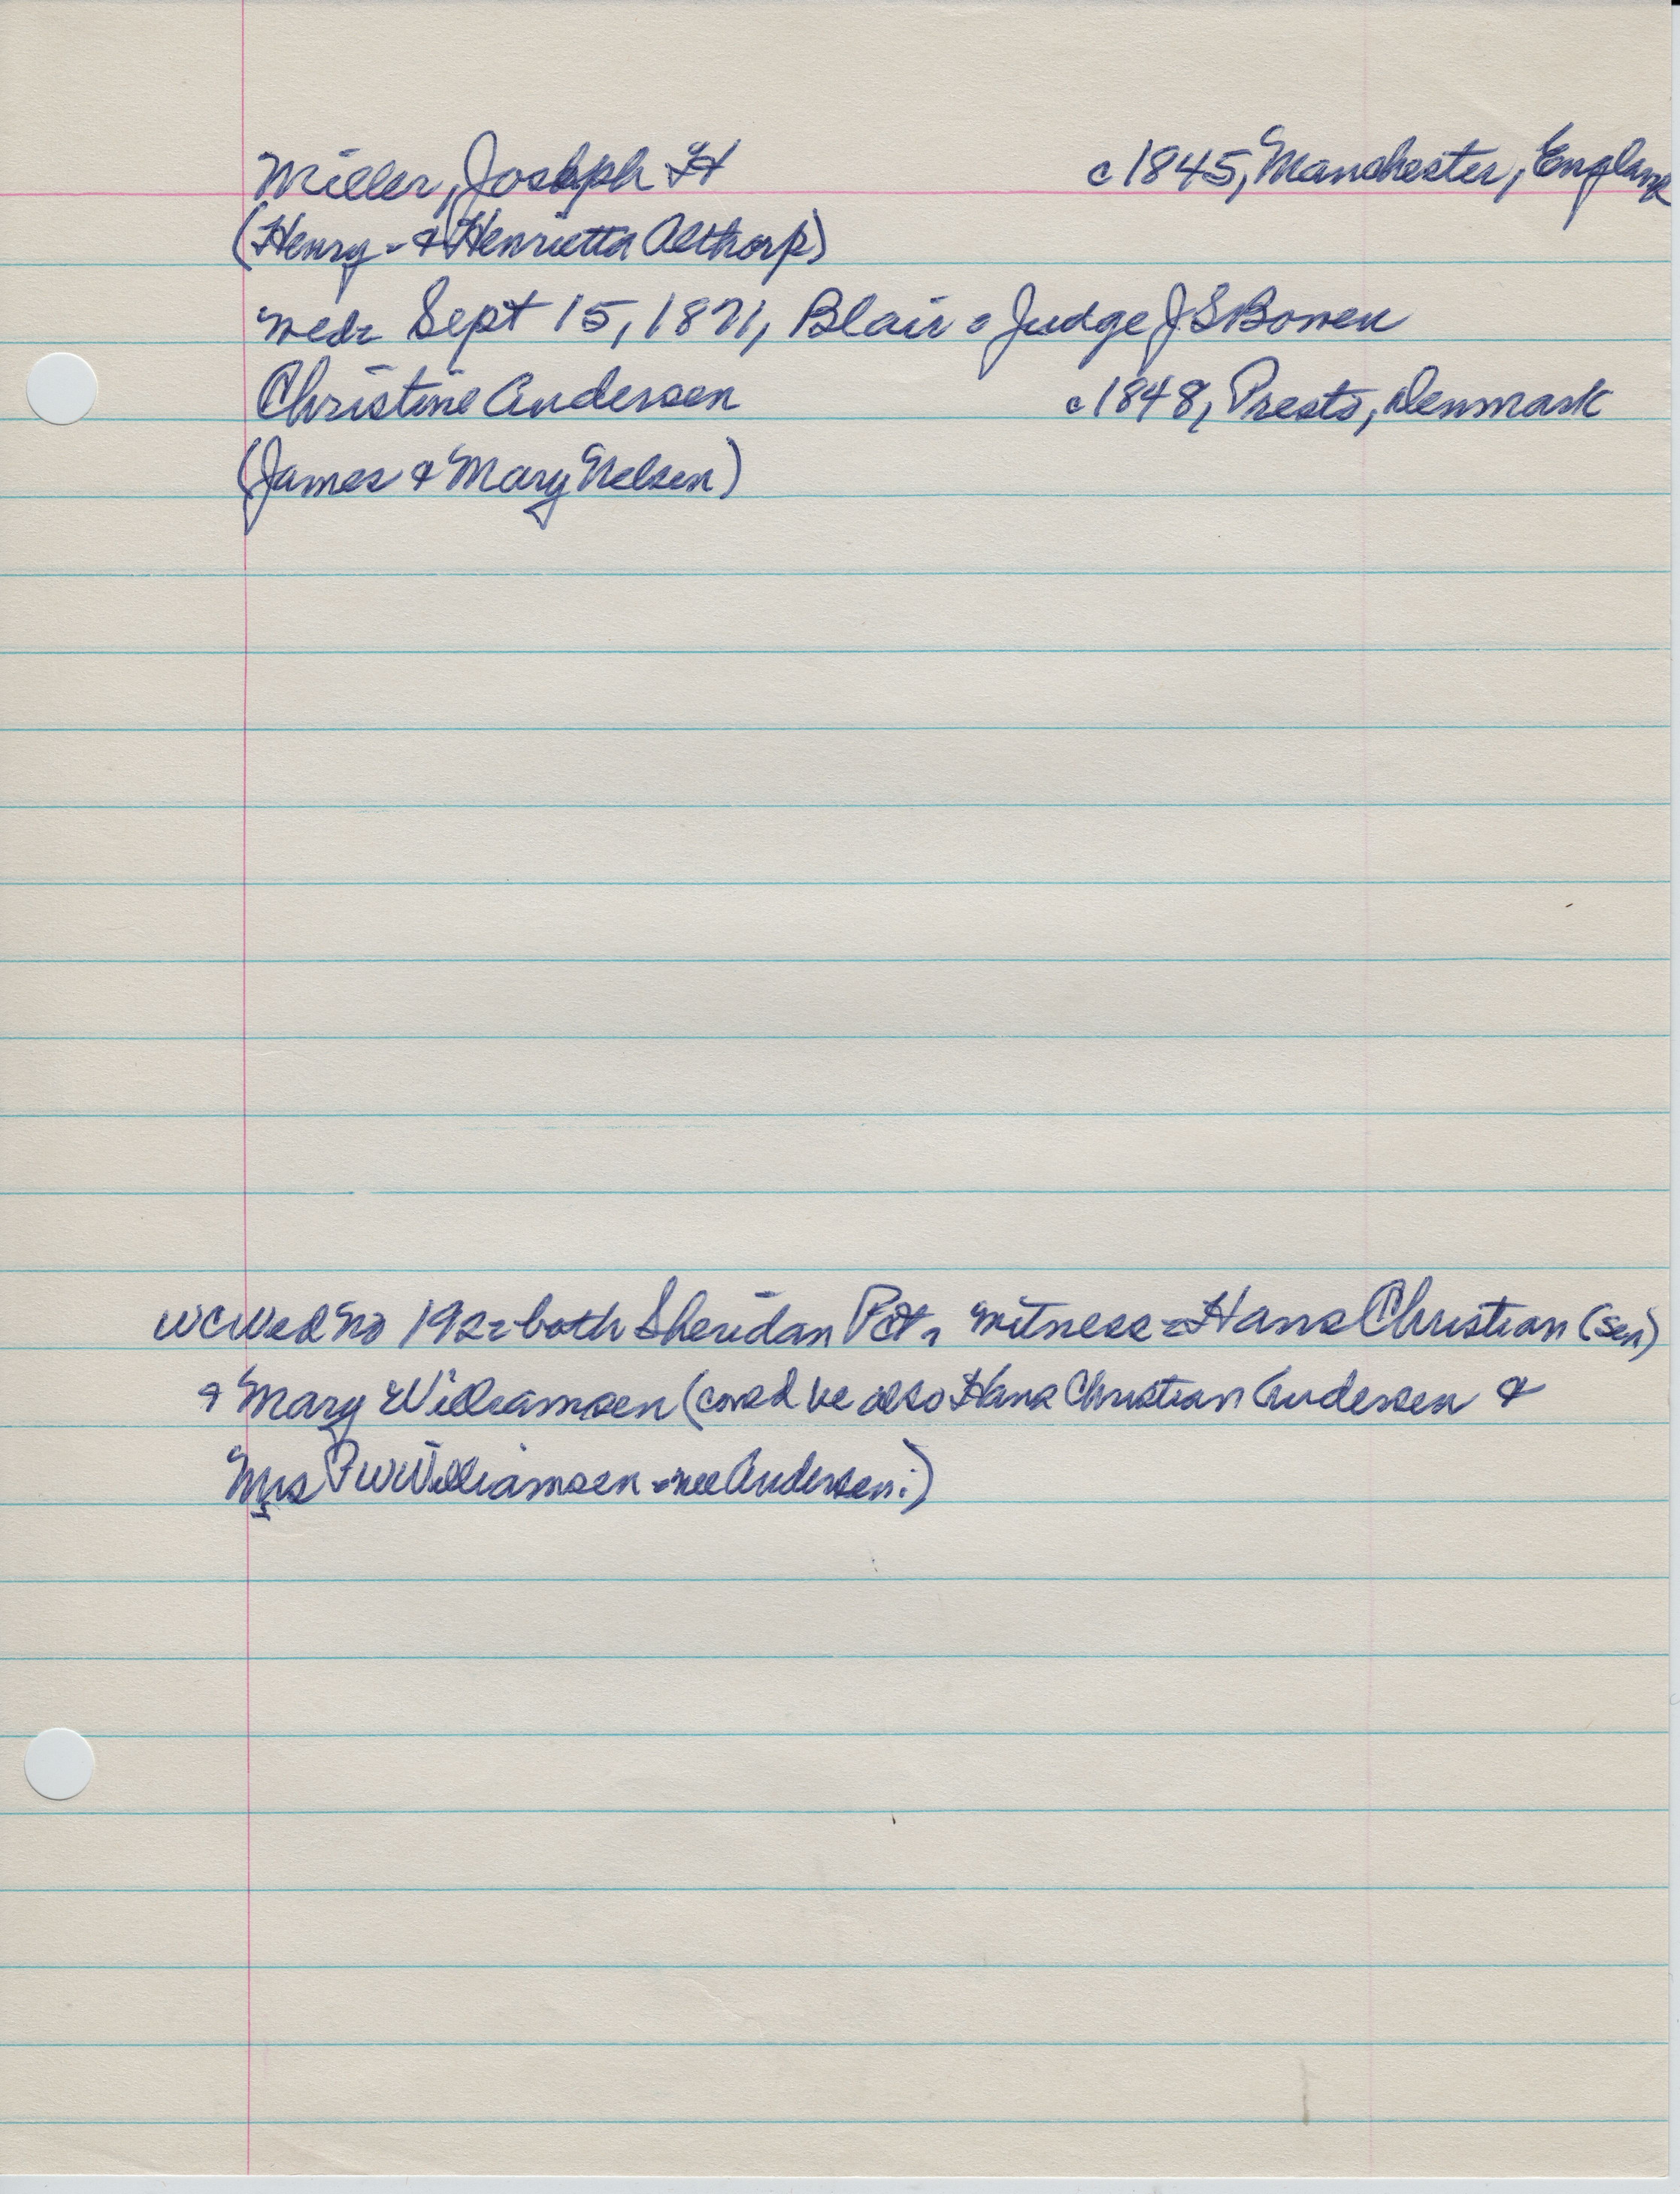 Miller, Joseph H c 1845, Manchester, England
(Henry - & Henrietta Althorp)
wed- Sept 15, 1871, Blair = Judge J S Bowen
Christine Andersen c 1848, Presto, Denmark
(James & Mary Nelsen)
WCWed No 192 - both Sheridan Pct, Witness = Hans Christian (sen)
& Mary Williamsen (could be also Hans Christian Andersen &
Mrs P W Williamsen - nee Andersen.)